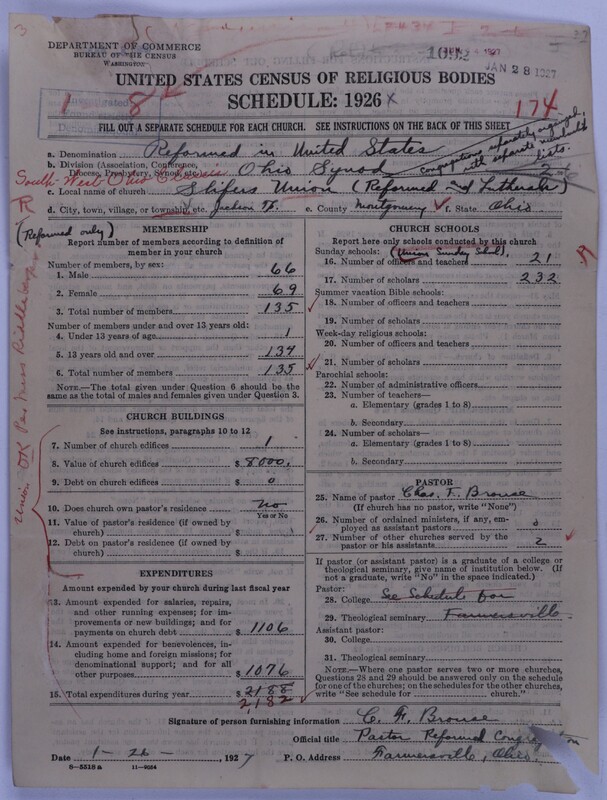 3
1032
JAN 28 1927
DEPARTMENT OF COMMERCE
BUREAU OF THE CENSUS
WASHINGTON
UNITED STATES CENSUS OF RELIGIOUS BODIES
SCHEDULE: 1926 x
1 8
174
FILL OUT A SEPARATE SCHEDULE FOR EACH CHURCH. SEE INSTRUCTIONS ON THE BACK OF THIS SHEET
congregations separately organized, with separate membership lists.
a. Denomination Reformed in United States
b. Division (Association, Conference, Diocese, Presbytery, Synod, etc.) Ohio Synod
South-West Ohio Classis
c. Local name of church Slifers Union (Reformed and Lutheran)
d. City, town, village, or township, etc. Jackson Tp. e. County Montgomery f. State Ohio
R
(Reformed only)
MEMBERSHIP
Report number of members according to definition of member in your church
Number of members, by sex:
1. Male 66
2. Female 69
3. Total number of members 135
Number of members under and over 13 years old:
4. Under 13 years of age 1
5. 13 years old and over 134
6. Total number of members 135
NOTE.—The total given under Question 6 should be the same as the total of males and females given under Question 3.
CHURCH BUILDINGS
See instructions, paragraphs 10 to 12
7. Number of church edifices 1
8. Value of church edifices $ 8000.
9. Debt on church edifices $ 0
10. Does church own pastor's residence No
Yes or No
11. Value of pastor's residence (if owned by church) $
12. Debt on pastor's residence (if owned by church) $
EXPENDITURES
Amount expended by your church during last fiscal year
13. Amount expended for salaries, repairs, and other running expenses; for improvements or new buildings; and for payments on church debt $ 1106
14. Amount expended for benevolences, including home and foreign missions; for denominational support; and for all other purposes $ 1076
15. Total expenditures during year $ 2188
2,182
CHURCH SCHOOLS
Report here only schools conducted by this church
Sunday schools: (Union Sunday School)
16. Number of officers and teachers 21
17. Number of scholars 232
Summer vacation Bible schools:
18. Number of officers and teachers
19. Number of scholars
Week-day religious schools:
20. Number of officers and teachers
21. Number of scholars
Parochial schools:
22. Number of administrative officers
23. Number of teachers—
a. Elementary (grades 1 to 8)
b. Secondary
24. Number of scholars—
a. Elementary (grades 1 to 8)
b. Secondary
PASTOR
25. Name of pastor Chas. F. Brouse
(If church has no pastor, write "None")
26. Number of ordained ministers, if any, employed as assistant pastors 0
27. Number of other churches served by the pastor or his assistants 2
If pastor (or assistant pastor) is a graduate of a college or theological seminary, give name of institution below. (If not a graduate, write "No" in the space indicated.)
Pastor:
28. College See Schedule for
29. Theological seminary Farmersville
Assistant pastor:
30. College
31. Theological seminary
NOTE.—Where one pastor serves two or more churches, Questions 28 and 29 should be answered only on the schedule for one of the churches; on the schedules for the other churches, write "See schedule for church."
Signature of person furnishing information C. F. Brouse
Official title Pastor Reformed Congregation
Date 1-26-, 1927 P. O. Address Farmersville, Ohio.
8—5518 a 11—9264